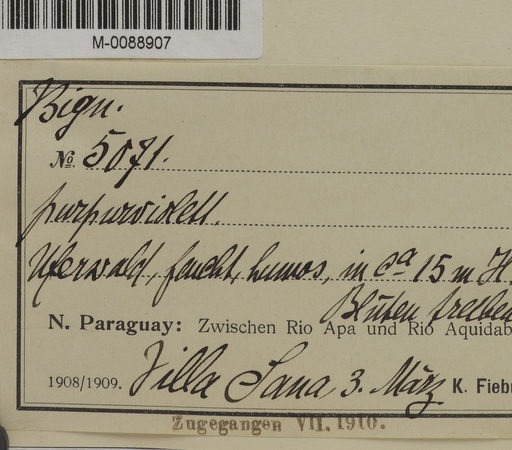 M-0088907
Bign.
No 5071.
purpurviolett.
Uferwald, feucht, humos, in ca 15 m H.
Blüten
N. Paraguay: Zwischen Rio Apa und Rio Aquidab
1908/1909. Villa Sana 3. März K. Fieb
Zugegangen VII. 1910.